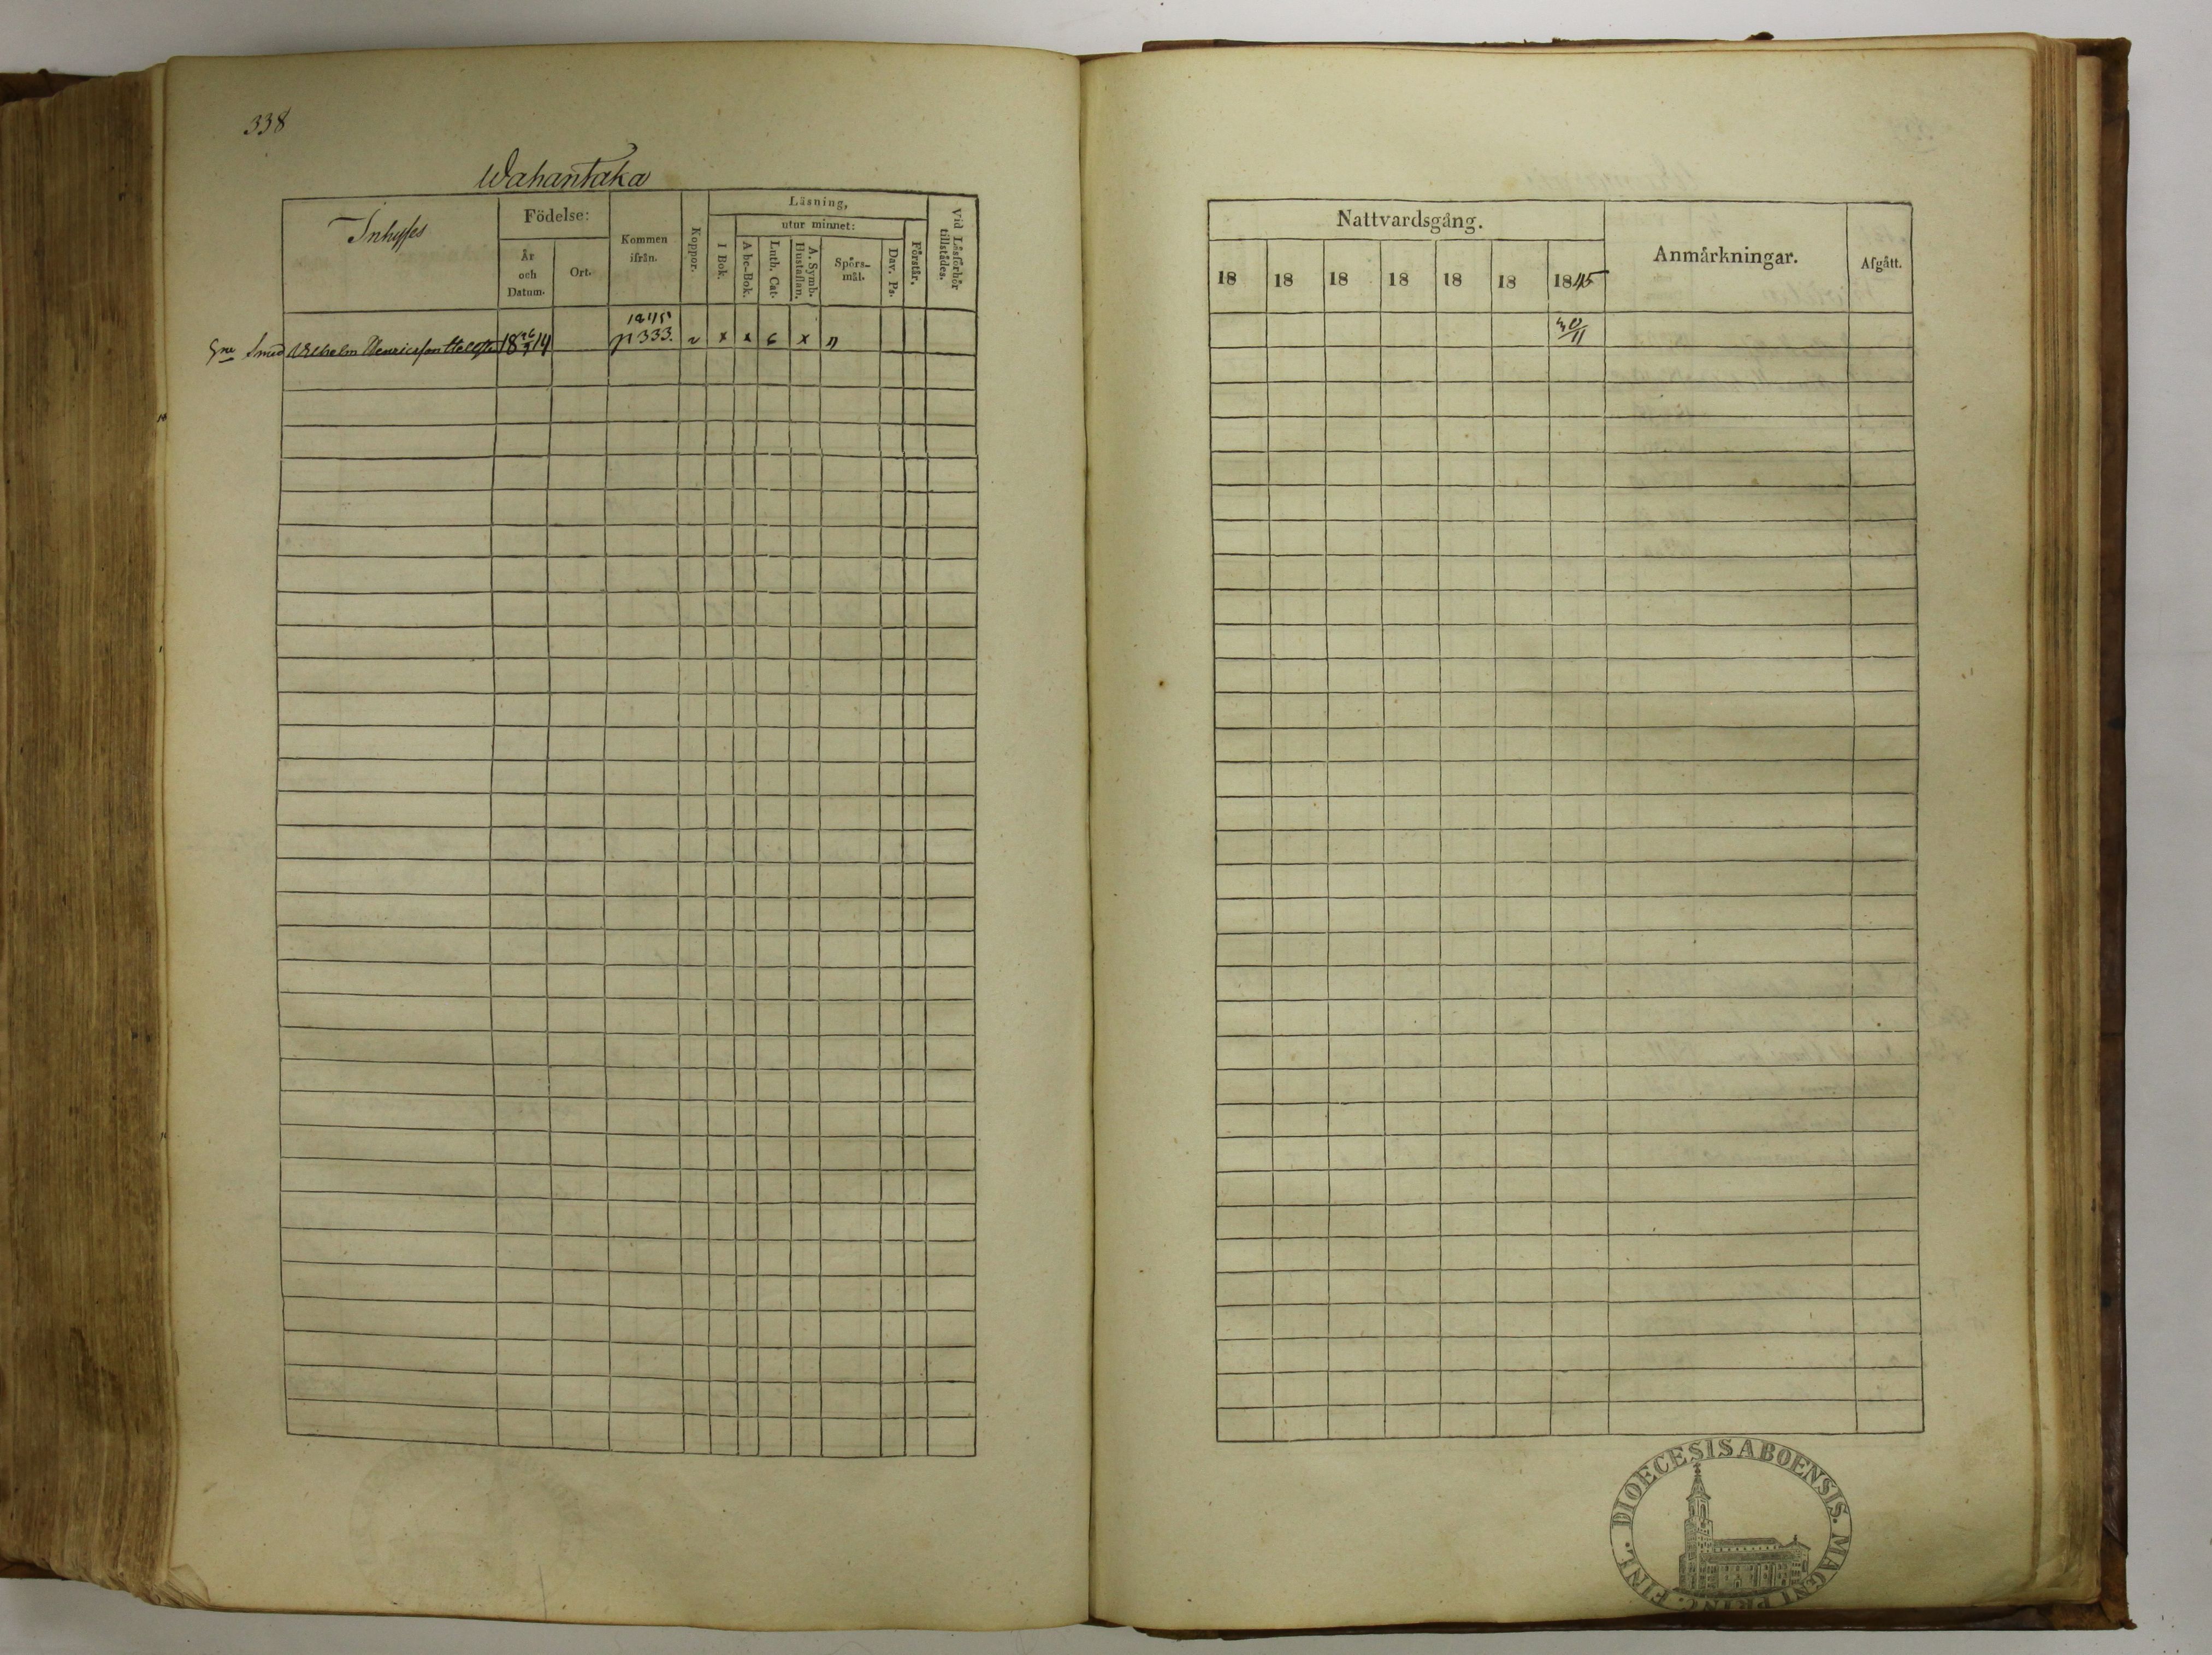 338
Wahantaka
Inhyses
Födelse:
År
och
Datum.
Ort.
Kommen
ifrån.
Koppor.
Läsning,
utur minnet:
I Bok.
Abc-Bok.
Luth. Cat.
A. Symb.
Hustaflan.
Spörs-
mål.
Dav. Ps.
Förstår.
Vid Läsförhör
tillstådes.
Smed Wilhelm Henricsson 18 14
1845
p 333. x x x
Nattvardsgång.
18 18 18 18 18 18 1845
Anmärkningar.
Afgått.
DIOECESIS ABOENSIS. MAGNI PRINC. FINL.